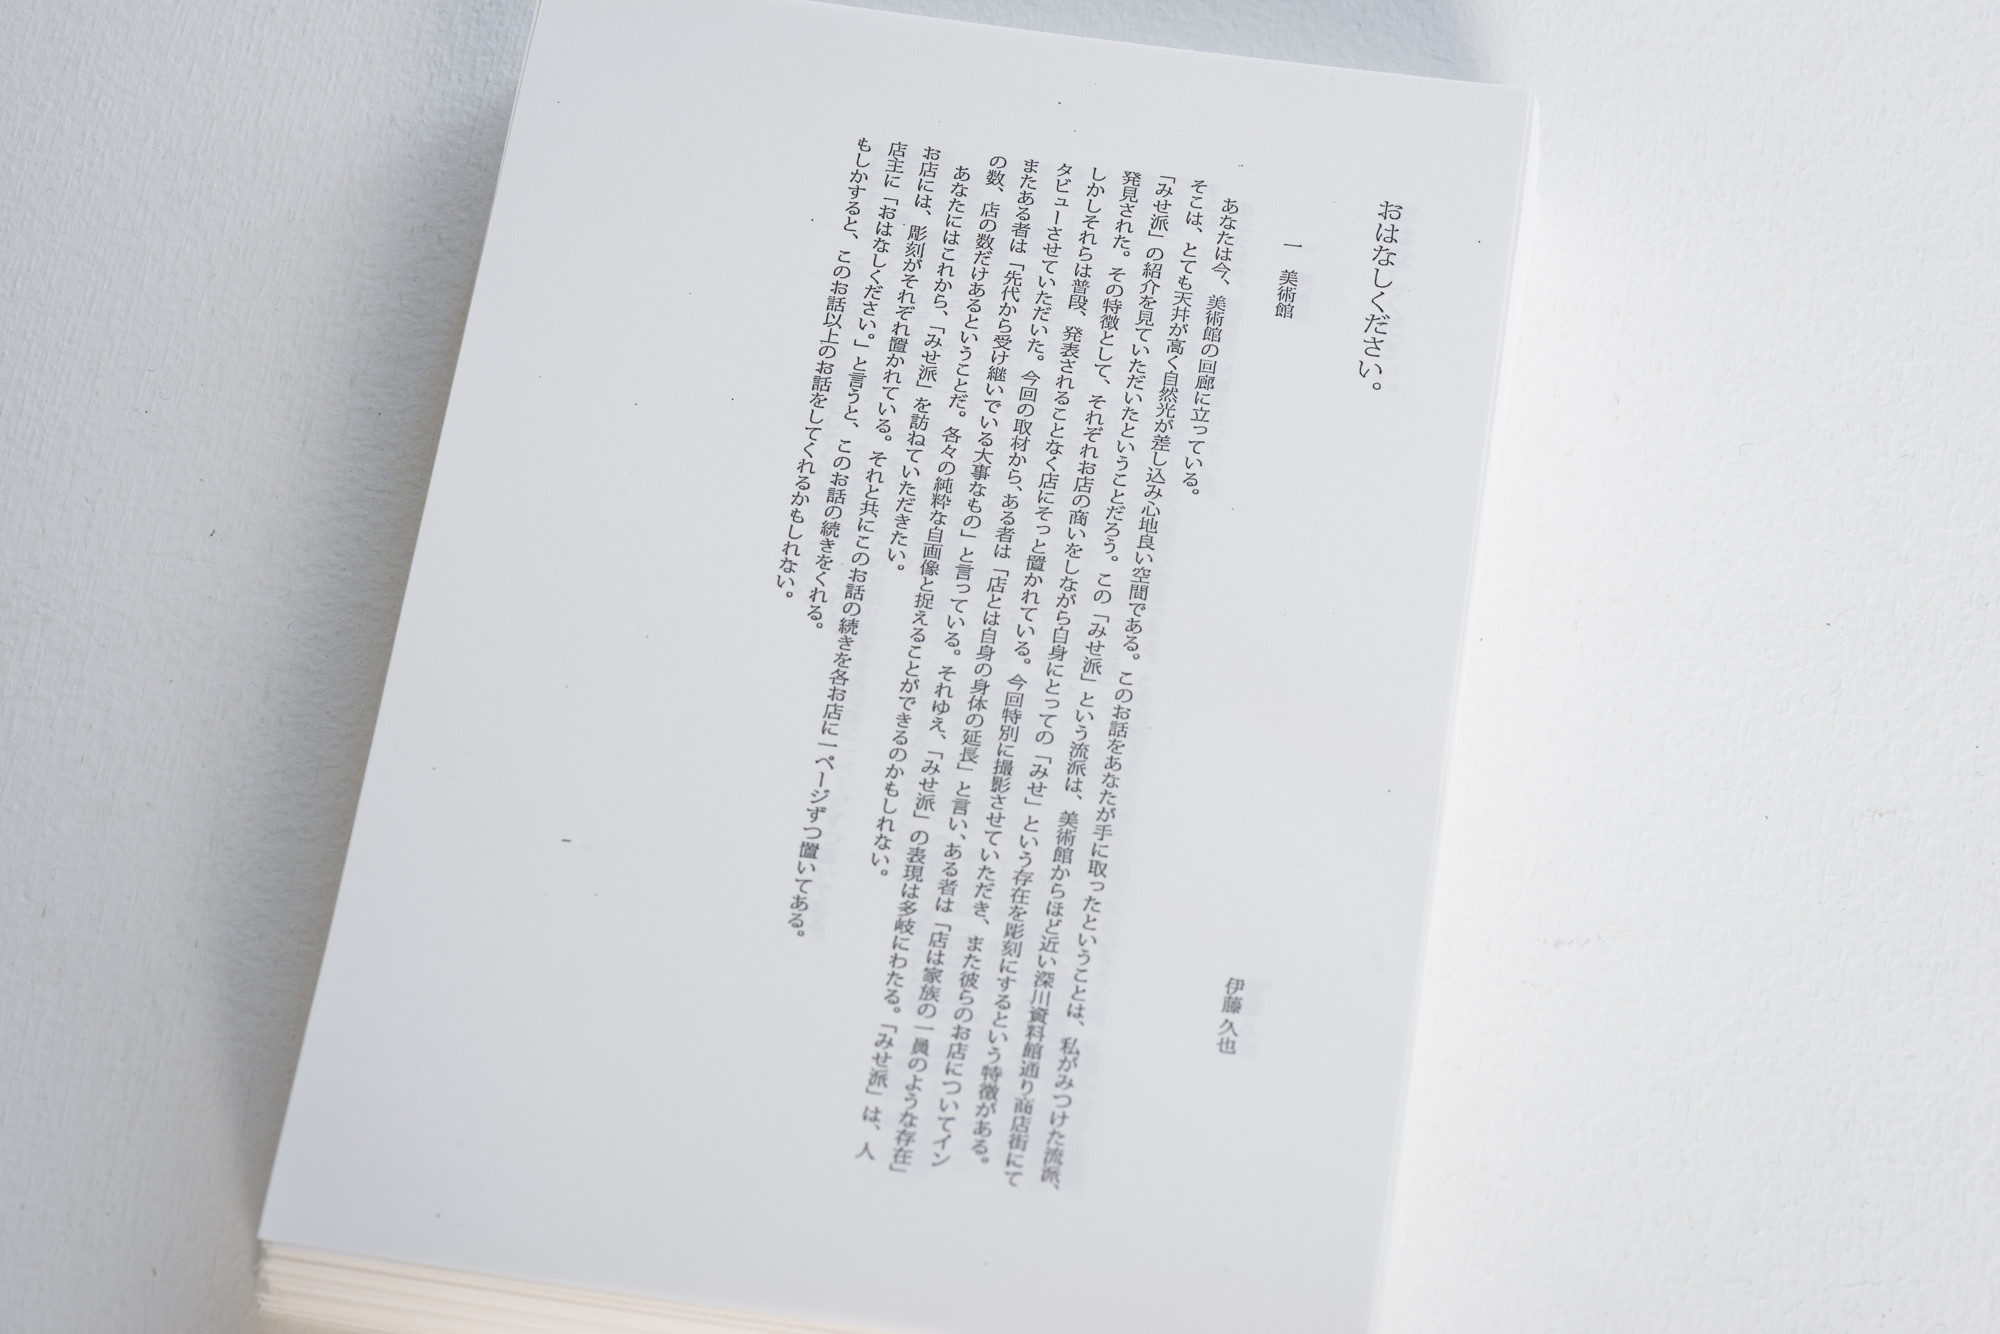 おはなしください。
伊藤 久也
一 美術館
あなたは今、美術館の回廊に立っている。
そこは、とても天井が高く自然光が差し込み心地良い空間である。このお話をあなたが手に取ったということは、私がみつけた流派、
「みせ派」の紹介を見ていただいたということだろう。この「みせ派」という流派は、美術館からほど近い深川資料館通り商店街にて
発見された。その特徴として、それぞれお店の商いをしながら自身にとっての「みせ」という存在を彫刻にするという特徴がある。
しかしそれらは普段、発表されることなく店にそっと置かれている。今回特別に撮影させていただき、また彼らのお店についてイン
タビューさせていただいた。今回の取材から、ある者は「店とは自身の身体の延長」と言い、ある者は「店は家族の一員のような存在」
またある者は「先代から受け継いでいる大事なもの」と言っている。それゆえ、「みせ派」の表現は多岐にわたる。「みせ派」は、人
の数、店の数だけあるということだ。各々の純粋な自画像と捉えることができるのかもしれない。
あなたにはこれから、「みせ派」を訪ねていただきたい。
お店には、彫刻がそれぞれ置かれている。それと共にこのお話の続きを各お店に一ページずつ置いてある。
店主に「おはなしください。」と言うと、このお話の続きをくれる。
もしかすると、このお話以上のお話をしてくれるかもしれない。